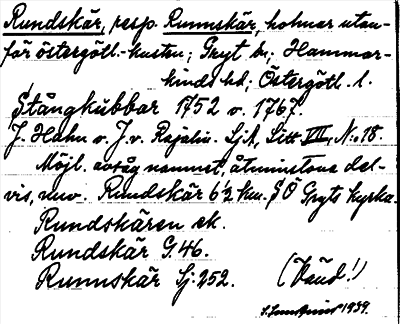 Rundskär, resp. Runnskär, holmar utan-
för östergötl.-kusten; Gryt sn; Hammar-
kinds hd; Östergötl. l.
Stångkubbar 1752 o. 1767.
J. Hahn o. J. v. Rajalin. SjA, Litt VII, N:o 18.
Möjl. avsåg namnet, åtminstone del-
vis, nuv. Rundskär 6½ km. SO Gryts kyrka.
Rundskären ek.
Rundskär G. 46.
Runnskär Sj: 252. (Vaud!)
1939.